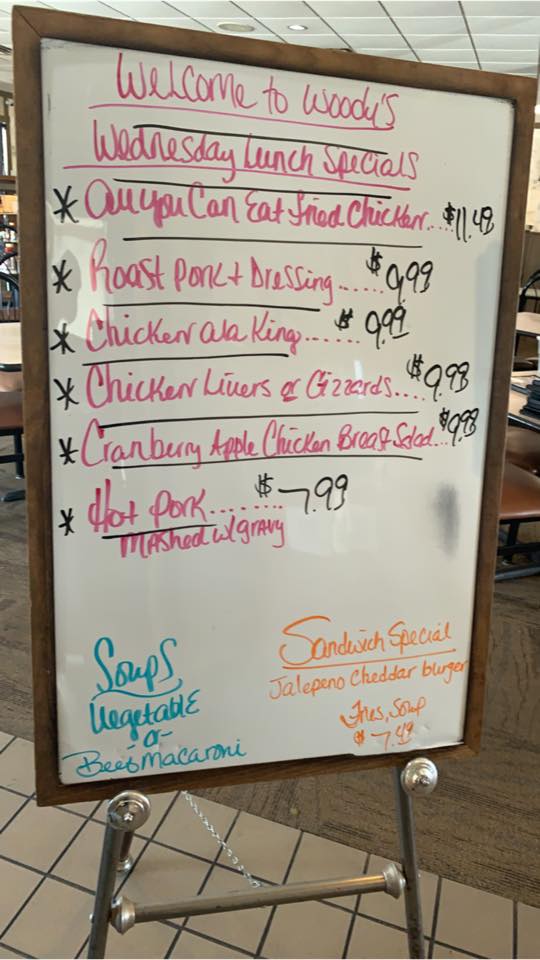 Welcome to Woody's
Wednesday Lunch Specials
* All you Can Eat Fried Chicken...$11.49
* Roast Pork + Dressing......$9.99
* Chicken ala King.......$9.99
* Chicken Livers or Gizzards....$9.99
* Cranberry Apple Chicken Breast Salad...$9.99
* Hot Pork........$7.99
Mashed w/gravy
Soups
Vegetable
-or-
Beef Macaroni
Sandwich Special
Jalepeno Cheddar burger
Fries, Soup
$7.49